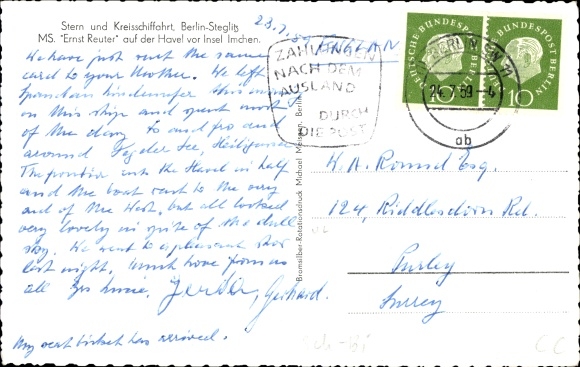 Stern und Kreisschiffahrt, Berlin-Steglitz
MS. "Ernst Reuter" auf der Havel vor Insel Imchen.
23.7.59
We have just sent the same
card to your Mother. We left
this morning
on this ship and spent most
of the day to and fro and
around Tegeler See, Heiligensee
The frontier cuts the Havel in half
and the boat went to the very
end of the West, but all looked
very lovely in spite of the dull
sky. We went to a pleasant
last night, much love from us
all yrs
Gerda, Gerhard.
My seat ticket has arrived.
Bromsilber-Rotationsdruck Michael Meissen, Berlin
ENGLAND
ZAHLUNGEN
NACH DEM
AUSLAND
DURCH
DIE POST
BERLIN SW 11
24.7.59
ab
DEUTSCHE BUNDESPOST BERLIN
10
DEUTSCHE BUNDESPOST BERLIN
10
W. A. Esq.
124, Riddlesdown Rd.
Purley
Surrey
CC